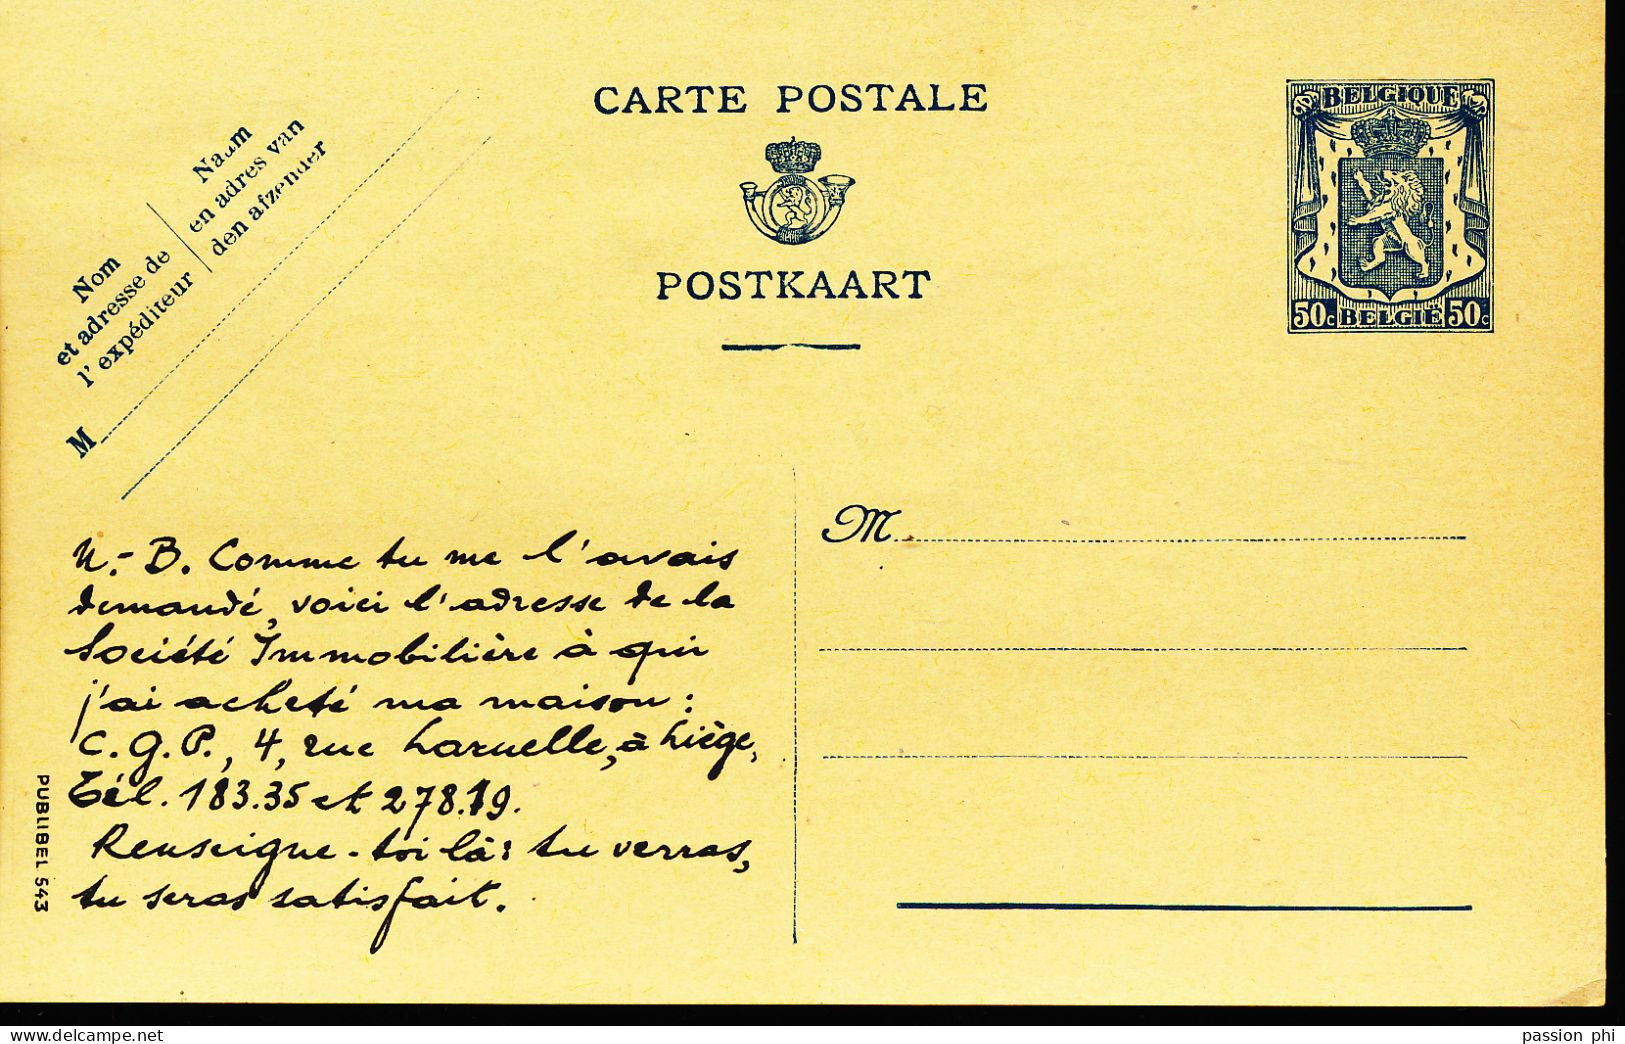 CARTE POSTALE
POSTKAART
BELGIQUE
50c BELGIË 50c
Nom
et adresse de
l'expéditeur
Naam
en adres van
den afzender
M
N.-B. Comme tu me l'avais
demandé, voici l'adresse de la
Société Immobilière à qui
j'ai acheté ma maison :
C.G.P., 4, rue Laruelle, à Liège,
Tél. 183.35 et 278.19.
Renseigne-toi là : tu verras,
tu seras satisfait.
PUBLIBEL 543
M
passion phi